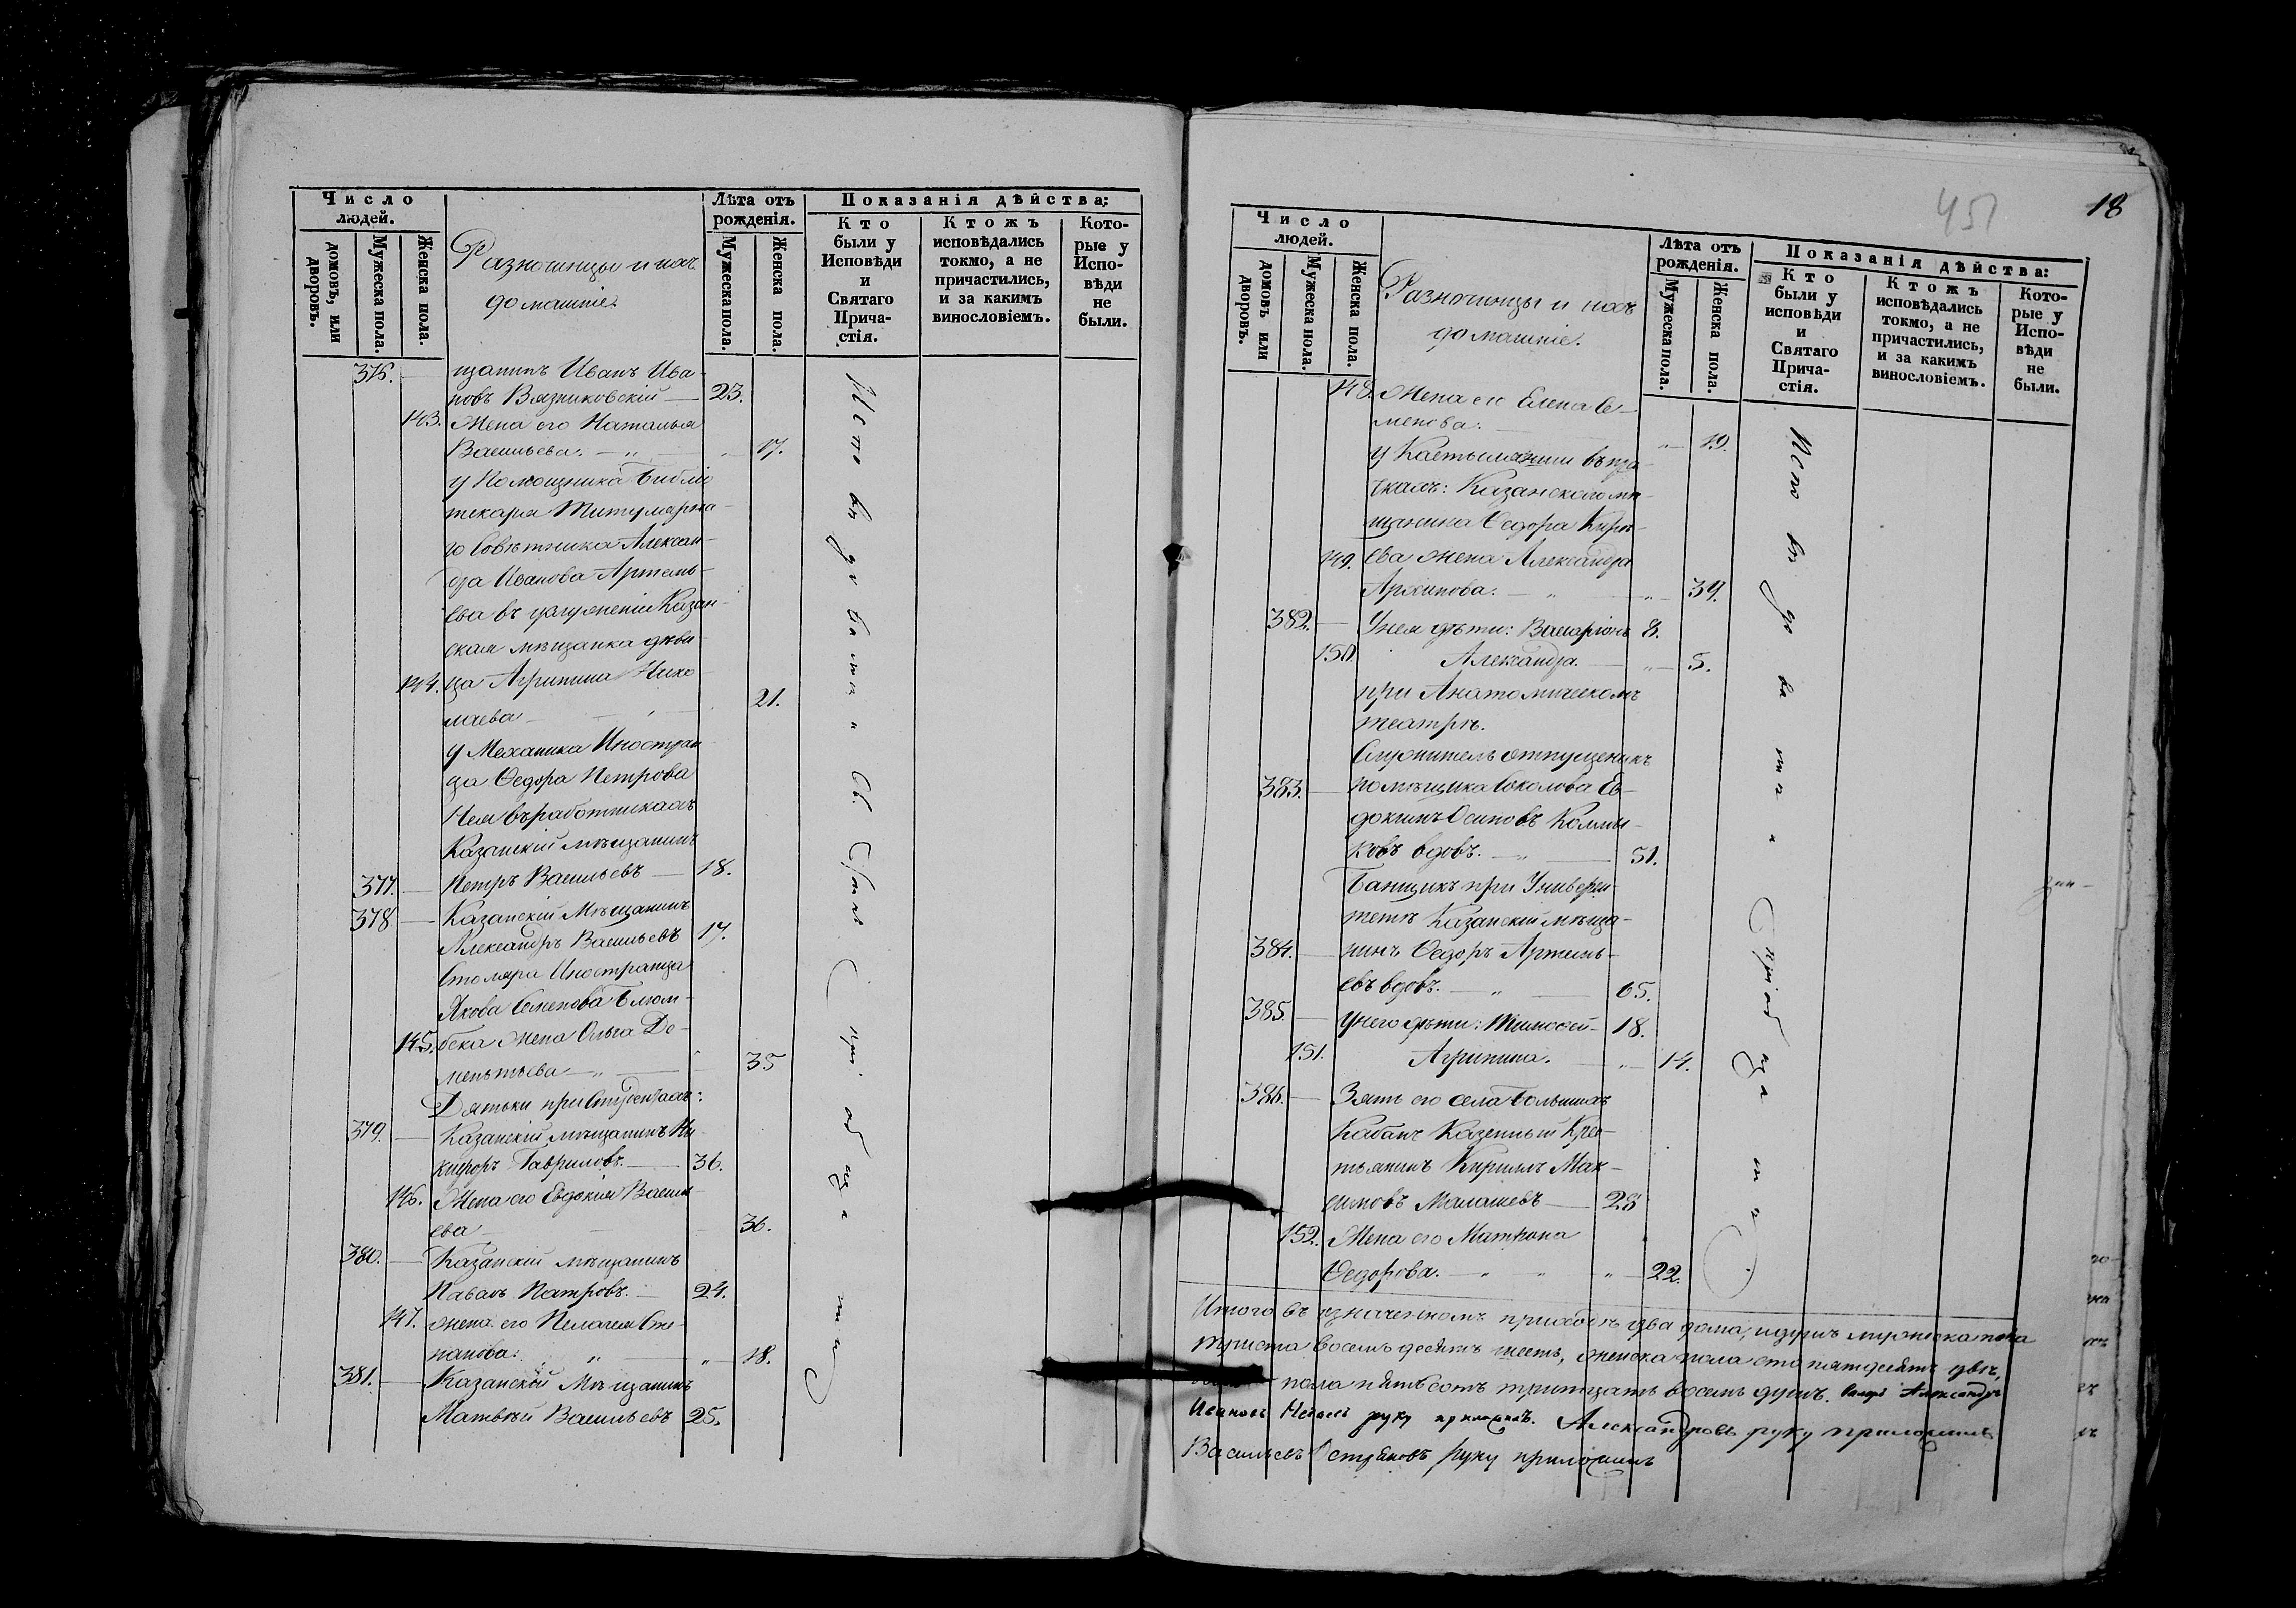 Число людей.
домовъ, или дворовъ.
Мужеска пола.
Женска пола.
Разночинцы и ихъ
домашніе.
Лѣта отъ рожденія.
Мужеска пола.
Женска пола.
Показанія дѣйства:
Кто были у Исповѣди и Святаго Прича-стія.
Ктожъ исповѣдались токмо, а не причастились, и за какимъ винословіемъ.
Кото-рые у Испо-вѣди не были.
376. щанинъ Иванъ Ива-
новъ Вязниковскій — 23.
143. Жена его Наталья
Васильева. — „ — 17.
у Помощника Библіо
текаря Титулярна-
го Совѣтника Алексан-
дра Иванова Артемь-
ева въ услуженіи Казан-
ская мѣщанка дѣви-
144. ца Агрипина Нико
лаева — 21.
у Механика Иностран
ца Ѳедора Петрова
Нея въ работникахъ
Казанскій мѣщанинъ
377. — Петръ Васильевъ — 18.
378 — Казанскій Мѣщанинъ
Александръ Васильевъ 17.
Столяра Иностранца
Якова Семенова Блюм-
145. бека Жена Ольга Де-
ментьева — „ — 35
Дятьки при Студентахъ:
379. — Казанскій мѣщанинъ Ни-
кифоръ Гавриловъ. — 36.
146. Жена его Евдокія Василь-
ева — 36.
380. — Казанскій мѣщанинъ
Павелъ Петровъ. — 24.
147. жена его Пелагея Сте-
панова: „ — „ — 18.
381. — Казанской Мѣщанинъ
Матвѣй Васильевъ 25.
Исповѣдовались и Св. Таинъ
пріобща
451
18
Число людей.
домовъ или дворовъ.
Мужеска пола.
Женска пола.
Разночинцы и ихъ
домашніе.
Лѣта отъ рожденія.
Мужеска пола.
Женска пола.
Показанія дѣйства:
Кто были у исповѣди и Святаго Прича-стія.
Ктожъ исповѣдались токмо, а не причастились, и за какимъ винословіемъ.
Кото-рые у Испо-вѣди не были.
148. Жена его Елена Се-
менова: — „ — 19.
у Кастелянши въ пра-
чкахъ: Казанскаго мѣ-
щанина Ѳедора Кирѣ-
149. ева жена Александра
Архипова. — „ — „ — 39.
382. — У нея дѣти: Иларіонъ 8.
150. Александра. — „ — 5.
при Анатомическомъ
театрѣ.
Служитель отпущеникъ
383. — помѣщика Соколова Ев-
докимъ Осиповъ Калмы-
ковъ вдовъ. — „ — 51.
Банщикъ при Универси-
тетѣ Казанскій мѣща-
384. — нинъ Ѳедоръ Артемь-
евъ вдовъ. — „ — 65.
385. — У него дѣти: Тимоѳей — 18.
151. Агрипина. — „ — 14.
386. — Зять его села Большихъ
Кабанъ Казенный Крес-
тьянинъ Кирилъ Мак-
симовъ Малашевъ — 28
152. Жена его Матрона
Ѳедорова. — „ „ „ — 22.
Итого въ означенномъ приходѣ два дома, и душъ мужеска пола
триста восемьдесятъ шесть, женска пола сто пятдесятъ двѣ,
пола пятьсотъ тритцать восемь душъ. Александръ
Ивановъ руку приложилъ. Александровъ руку приложилъ
Васильевъ руку приложилъ